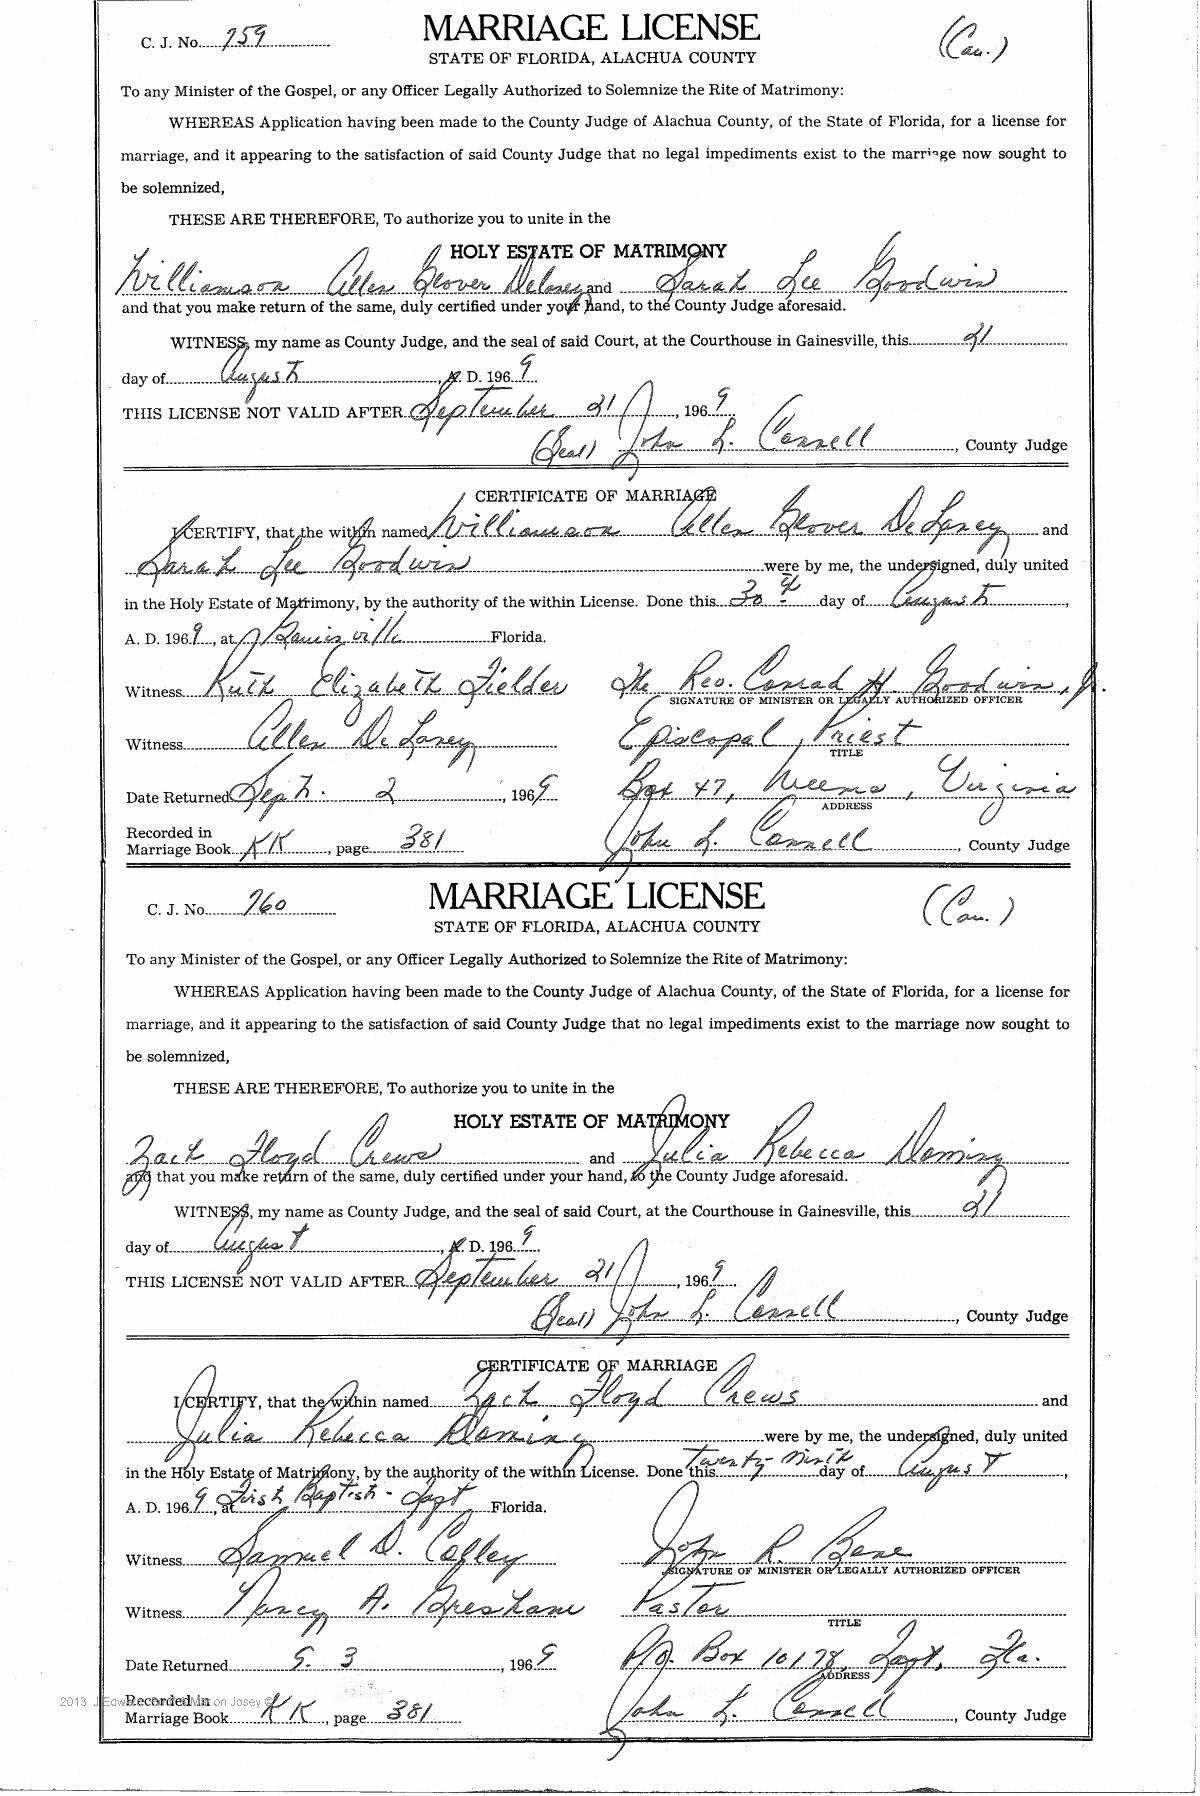 C. J. No. 759
MARRIAGE LICENSE
(Cau.)
STATE OF FLORIDA, ALACHUA COUNTY
To any Minister of the Gospel, or any Officer Legally Authorized to Solemnize the Rite of Matrimony:
WHEREAS Application having been made to the County Judge of Alachua County, of the State of Florida, for a license for
marriage, and it appearing to the satisfaction of said County Judge that no legal impediments exist to the marriage now sought to
be solemnized,
THESE ARE THEREFORE, To authorize you to unite in the
HOLY ESTATE OF MATRIMONY
Williamson Allen Glover Delaney and Sarah Lee Goodwin
and that you make return of the same, duly certified under your hand, to the County Judge aforesaid.
WITNESS, my name as County Judge, and the seal of said Court, at the Courthouse in Gainesville, this 21
day of August, A. D. 1969
THIS LICENSE NOT VALID AFTER September 21, 1969
(Seal) John L. Connell, County Judge
CERTIFICATE OF MARRIAGE
I CERTIFY, that the within named Williamson Allen Glover DeLaney and
Sarah Lee Goodwin were by me, the undersigned, duly united
in the Holy Estate of Matrimony, by the authority of the within License. Done this 30th day of August,
A. D. 1969, at Gainesville Florida.
Witness Ruth Elizabeth Fielder The Rev. Conrad H. Goodwin, Jr.
SIGNATURE OF MINISTER OR LEGALLY AUTHORIZED OFFICER
Witness Allen DeLaney Episcopal Priest
TITLE
Date Returned Sept. 2, 1969 Box 47, Weems, Virginia
ADDRESS
Recorded in
Marriage Book KK, page 381 John L. Connell, County Judge
C. J. No. 760
MARRIAGE LICENSE
(Cau.)
STATE OF FLORIDA, ALACHUA COUNTY
To any Minister of the Gospel, or any Officer Legally Authorized to Solemnize the Rite of Matrimony:
WHEREAS Application having been made to the County Judge of Alachua County, of the State of Florida, for a license for
marriage, and it appearing to the satisfaction of said County Judge that no legal impediments exist to the marriage now sought to
be solemnized,
THESE ARE THEREFORE, To authorize you to unite in the
HOLY ESTATE OF MATRIMONY
Zack Floyd Crews and Julia Rebecca Doming
and that you make return of the same, duly certified under your hand, to the County Judge aforesaid.
WITNESS, my name as County Judge, and the seal of said Court, at the Courthouse in Gainesville, this 21
day of August, A. D. 1969
THIS LICENSE NOT VALID AFTER September 21, 1969
(Seal) John L. Connell, County Judge
CERTIFICATE OF MARRIAGE
I CERTIFY, that the within named Zack Floyd Crews and
Julia Rebecca Doming were by me, the undersigned, duly united
in the Holy Estate of Matrimony, by the authority of the within License. Done this Twenty-ninth day of August,
A. D. 1969, at First Baptist - Florida.
Witness Samuel D. John R. Bene
SIGNATURE OF MINISTER OR LEGALLY AUTHORIZED OFFICER
Witness Nancy A. Gresham Pastor
TITLE
Date Returned 9. 3, 1969 P.O. Box 10178, Fla.
ADDRESS
Recorded in
Marriage Book KK, page 381 John L. Connell, County Judge